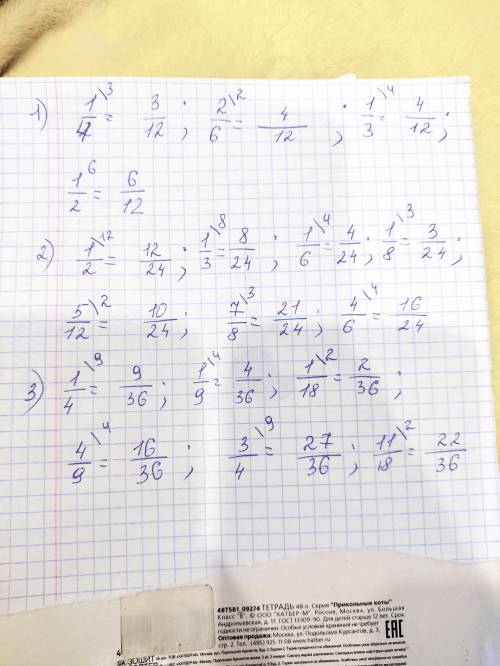 1) 1/4\3 = 3/12 ; 2/6\2 = 4/12 ; 1/3\4 = 4/12 ;
1/2 6 = 6/12
2) 1/2\12 = 12/24 ; 1/3\8 = 8/24 ; 1/6\4 = 4/24 ; 1/8\3 = 3/24 ;
5/12\2 = 10/24 ; 7/8\3 = 21/24 ; 4/6\4 = 16/24
3) 1/4\9 = 9/36 ; 1/9\4 = 4/36 ; 1/18\2 = 2/36 ;
4/9\4 = 16/36 ; 3/4\9 = 27/36 ; 11/18\2 = 22/36
48Т5В1_09274 ТЕТРАДЬ 48 л. Серия "Прикольные коты"
Класс "В". © ООО "ХАТБЕР-М". Россия, Москва, ул. Большая
Андроньевская, д. 17. ГОСТ 13309-90. Для детей старше 12 лет. Срок
годности не ограничен. Особых условий хранения не требует
Оптовая продажа: Москва, ул. Подольских Курсантов, д. 3,
стр. 2. Тел.: (495) 925-11-08 www.hatber.ru
EAC
4
ЗОШИТ